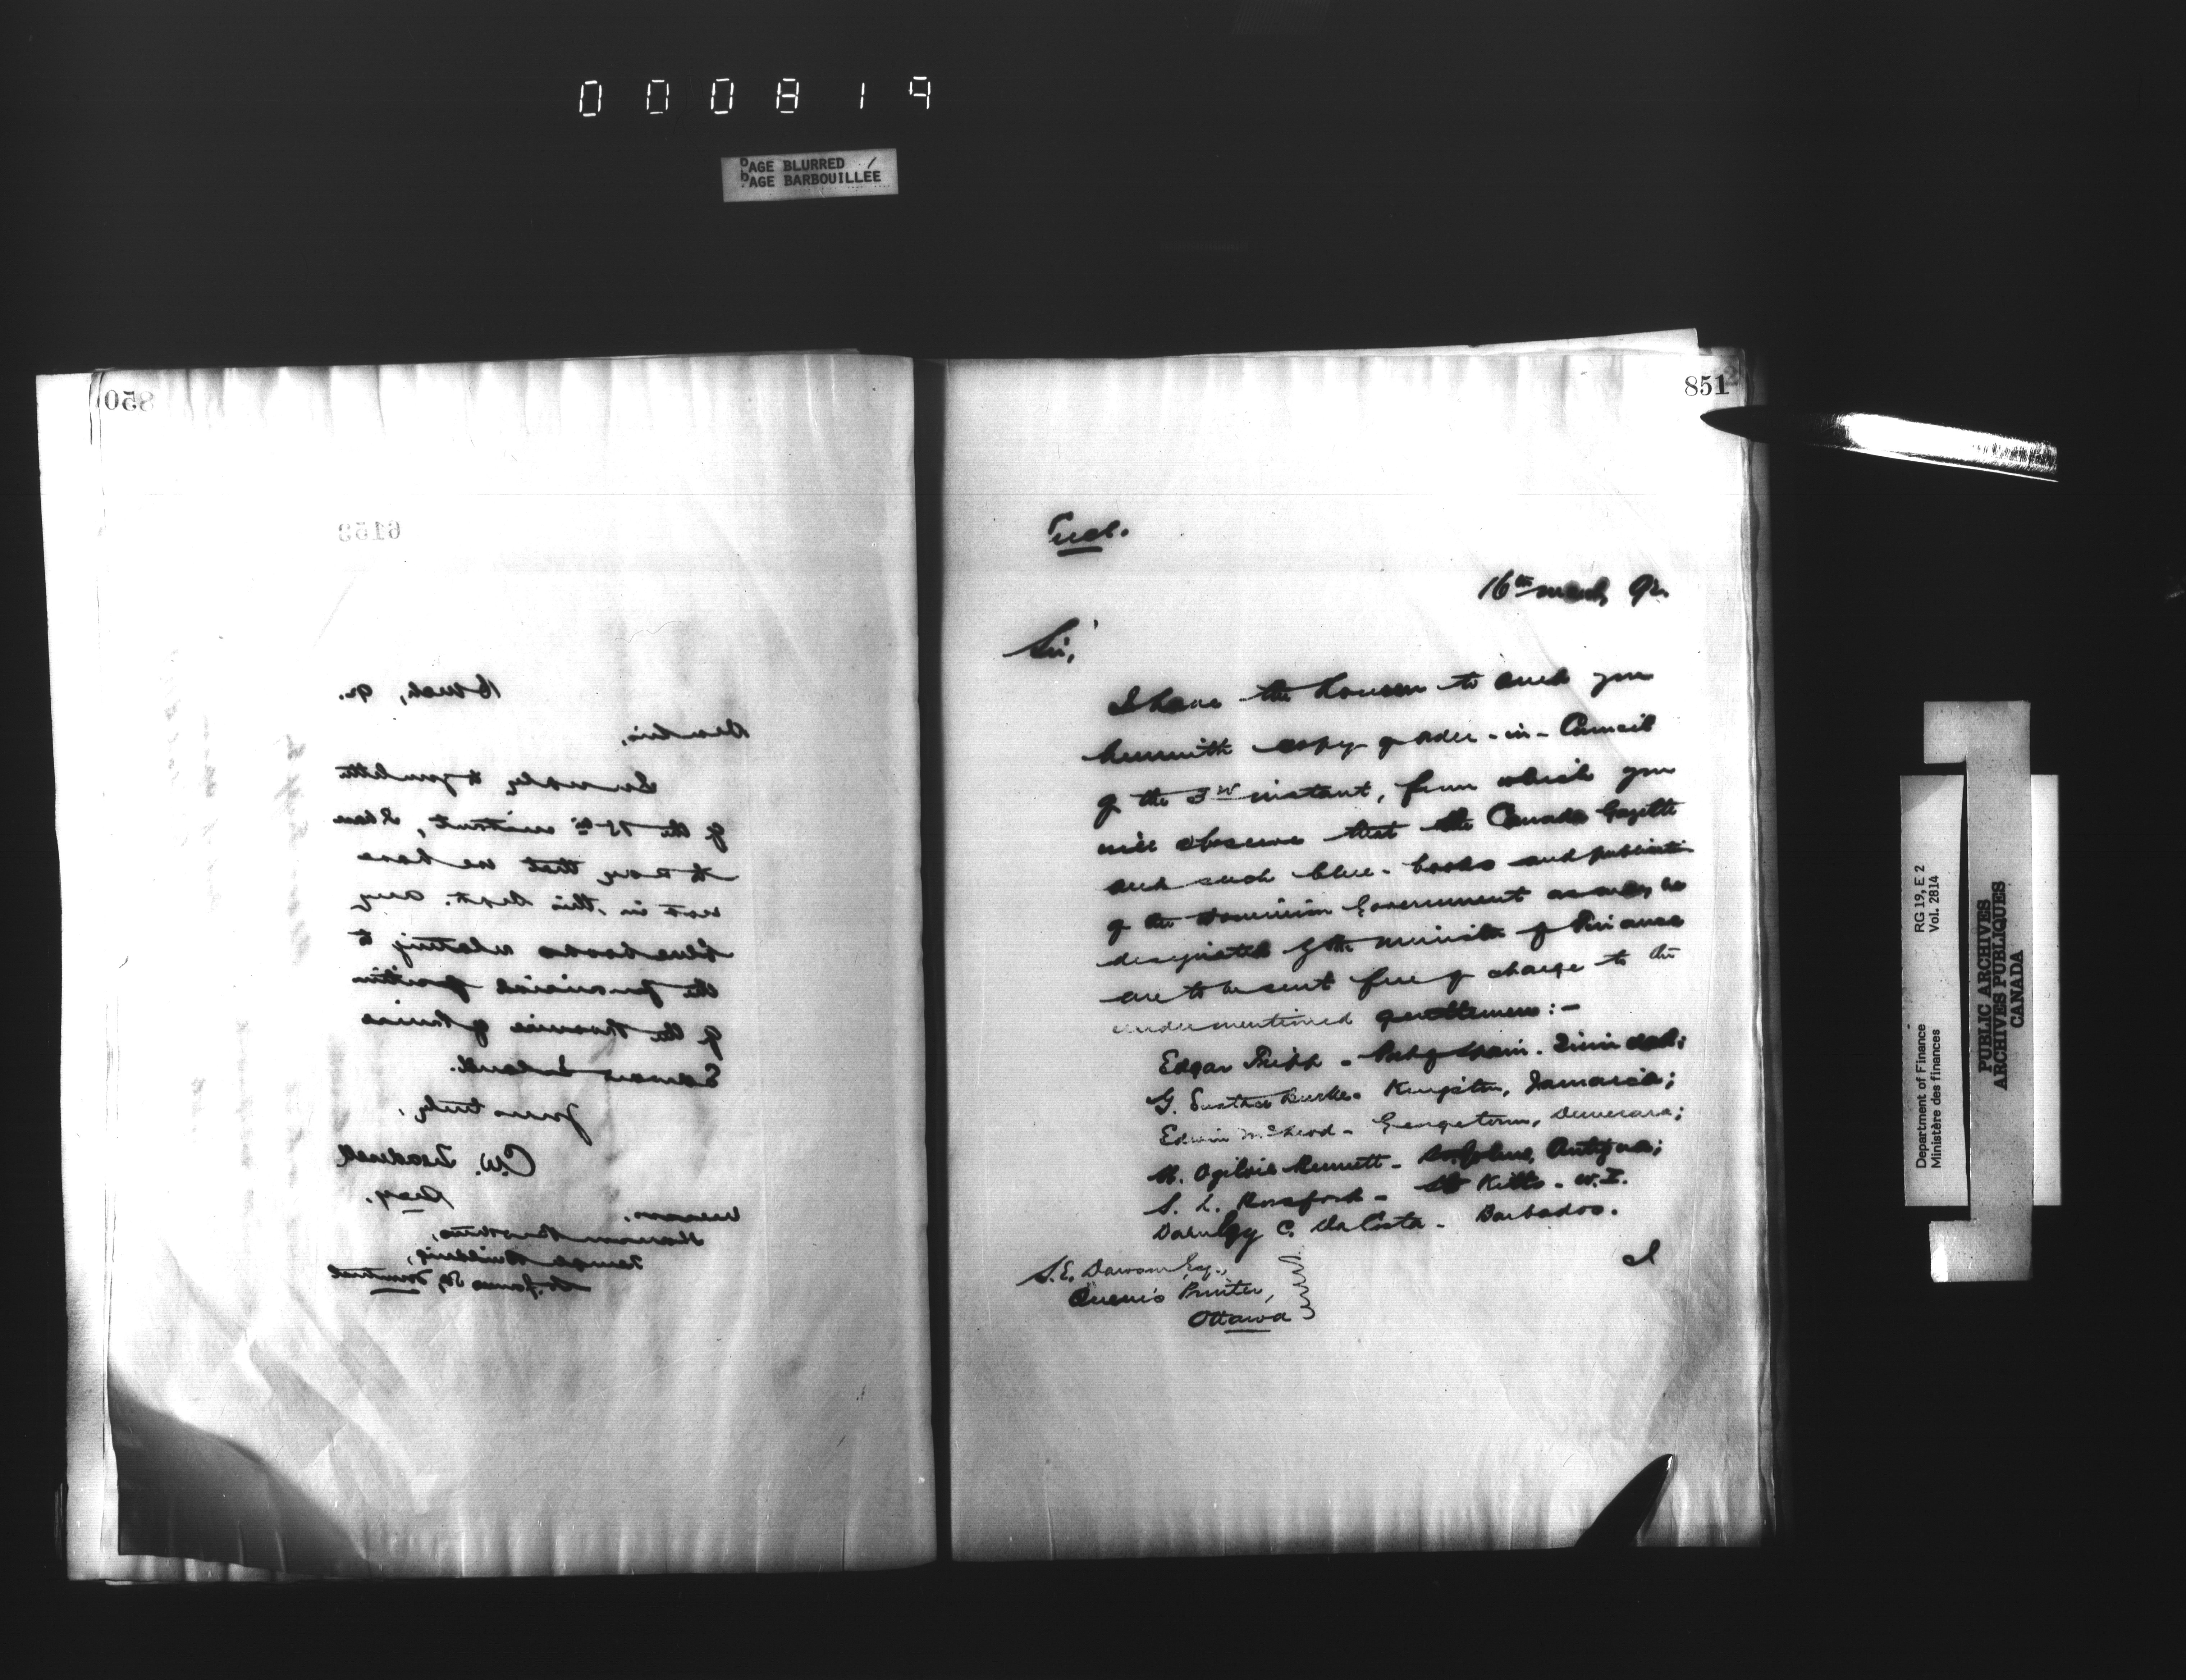 000819
PAGE BLURRED /
PAGE BARBOUILLÉE
850
6153
16 Mch, 92.
Dear Sir,
In reply to your letter
of the 15th instant, I have
to say that we have
not in this Dept. any
blue books relating to
the financial position
of the Province of Prince
Edward Island.
Yours truly,
C.W. Treadwell
Secy.
Messrs.
Hanson Brothers,
Temple Building,
St. James St, Montreal
851
Encl.
16th March 92.
Sir,
I have the honour to send you
herewith copy of Order-in-Council
of the 3rd instant, from which you
will observe that the Canada Gazette
and such blue-books and publications
of the Dominion Government as may be
designated by the Minister of Finance
are to be sent free of charge to the
undermentioned gentlemen:-
Edgar Tripp - Port of Spain - Trinidad;
G. Eustace Burke - Kingston, Jamaica;
Edwin McLeod - Georgetown, Demerara;
R. Ogilvie Bennett - St. Johns, Antigua;
S. L. Horsford - St Kitts - W.I.
Darnley C. DaCosta - Barbados.
I
S.E. Dawson Esq.,
Queen's Printer,
Ottawa
Department of Finance
Ministère des finances
RG 19, E 2
Vol. 2814
PUBLIC ARCHIVES
ARCHIVES PUBLIQUES
CANADA